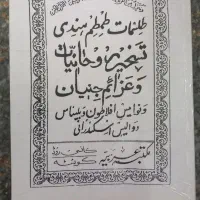 طلسمات طمطم ہندی
تسخیر روحانیات
و عزائم جنیان
و نوامیس افلاطون و بلیناس
دوالیس اسکندرانی
مکتبہ عزیزیہ
کوئٹہ